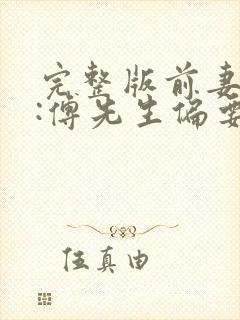 完整版前妻
:傅先生偏要
伍真由